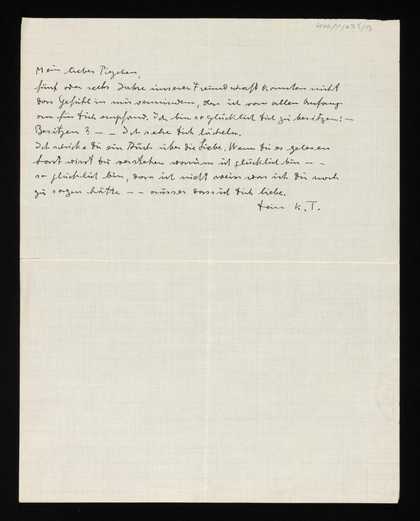 Mein liebes
fünf oder sechs Jahre unserer Freundschaft konnten nicht
das Gefühl in mir vermindern, das ich von allem Anfang
an für Dich empfand. Ich bin so glücklich Dich zu besitzen! –
Besitzen? – – Ich sehe Dich lächeln.
Ich schicke Dir ein Buch über die Liebe. Wenn Du es gelesen
hast wirst Du verstehen warum ich glücklich bin – –
so glücklich bin, dass ich nicht weiss was ich Dir noch
zu sagen hätte – – ausser dass ich Dich liebe.
Dein K. T.